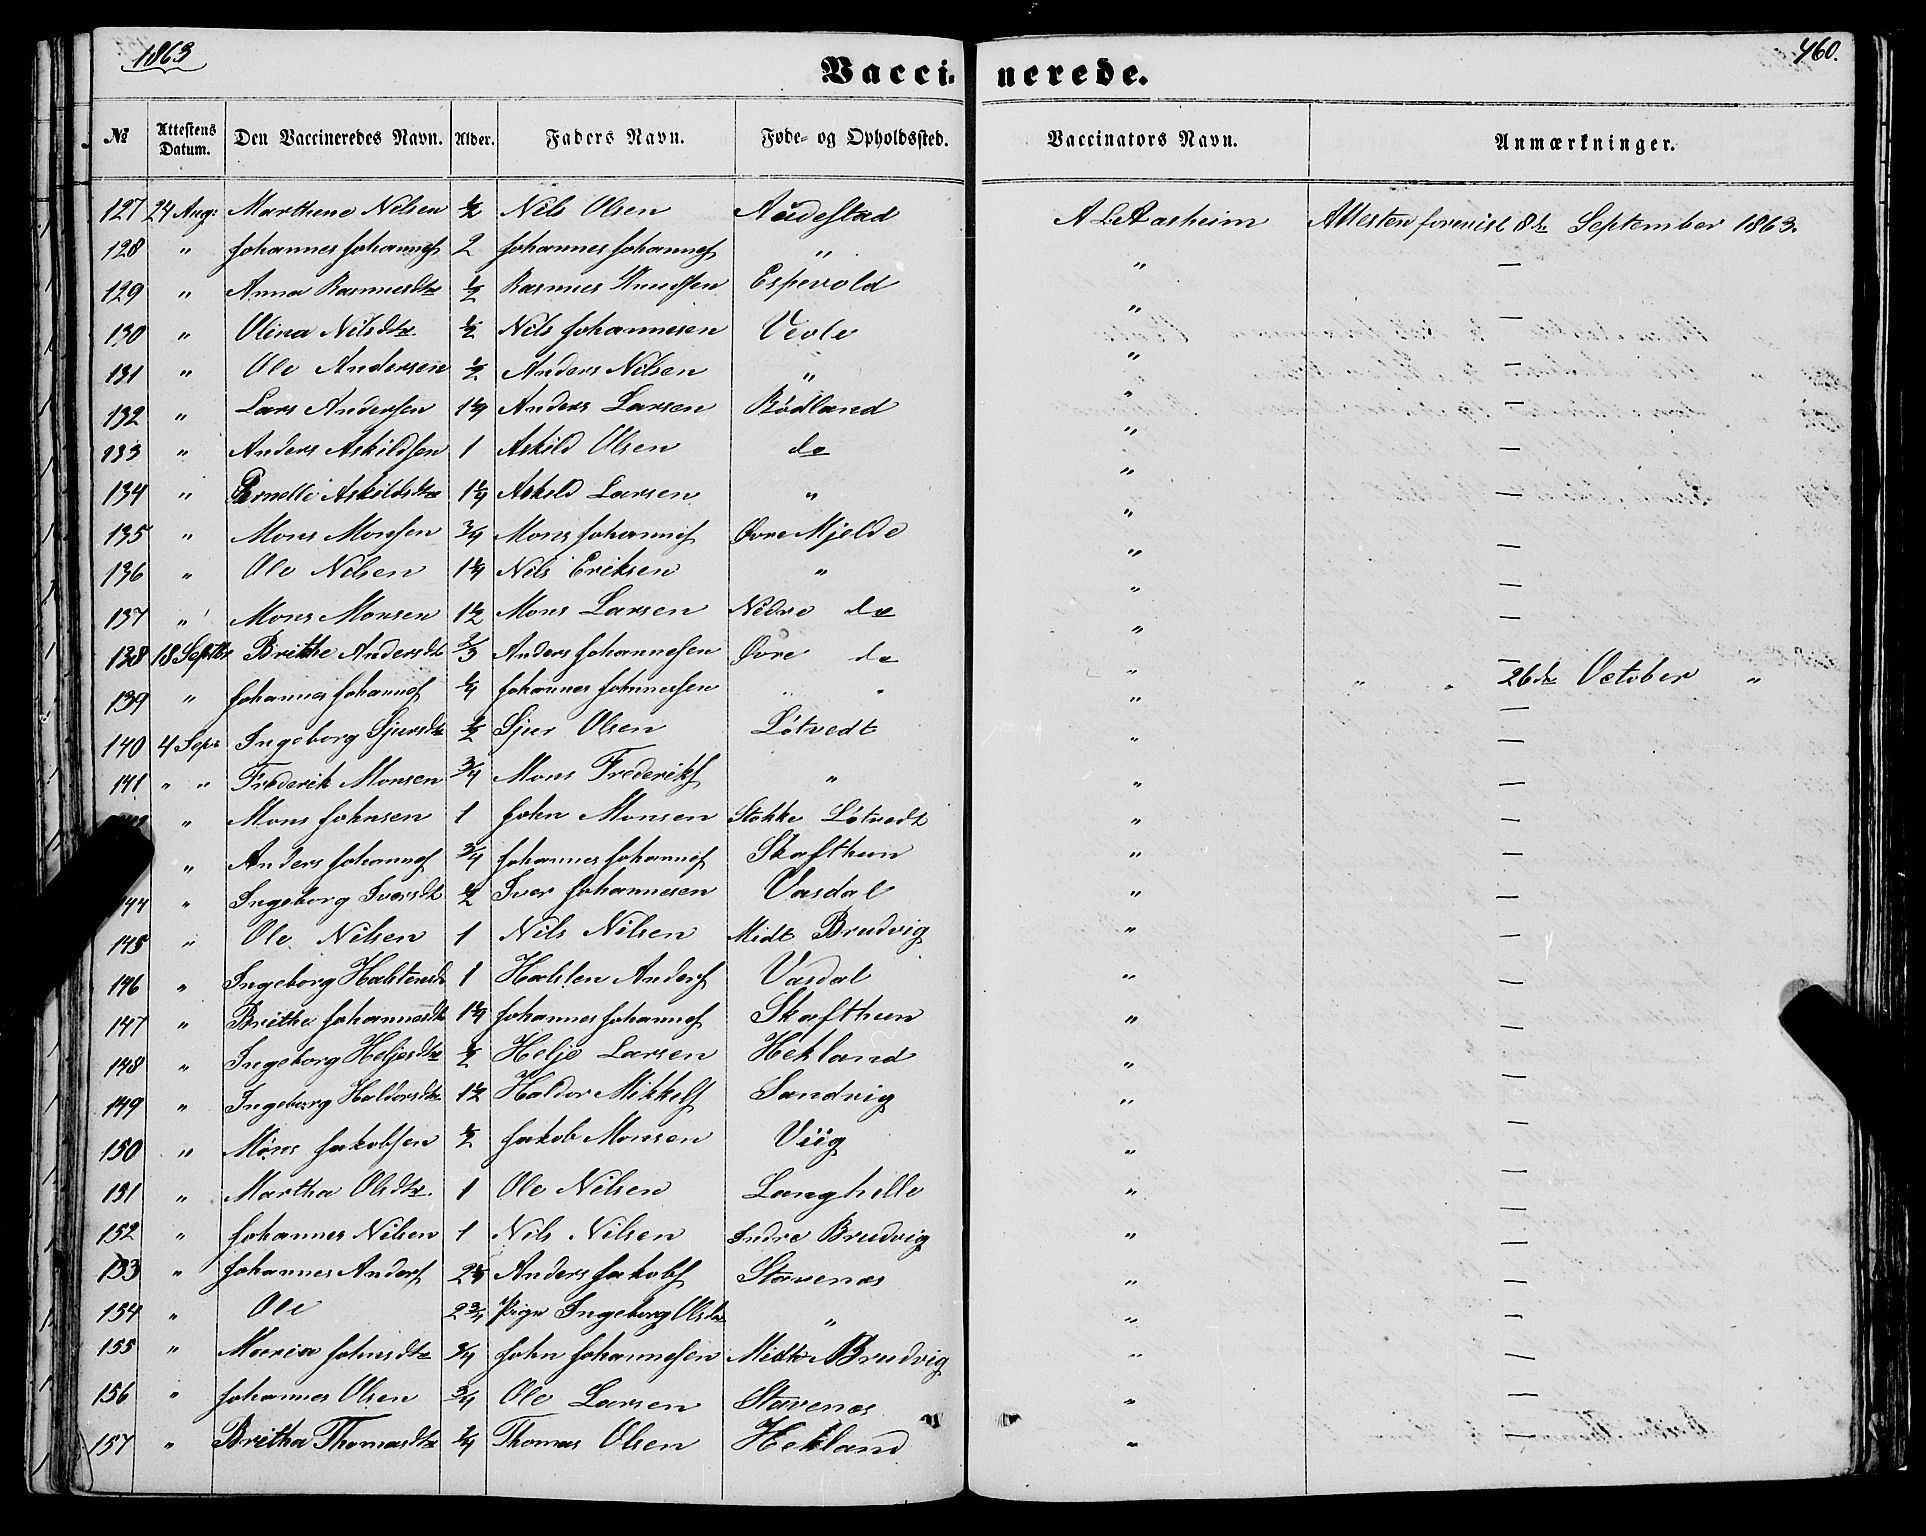 1863
460.
Vaccinerede.
№ Attestens Datum. Den Vaccineredes Navn. Alder. Faders Navn. Føde- og Opholdssted. Vaccinators Navn. Anmærkninger.
127 24 Aug: Marthene Nilsen ½ Nils Olsen Audestad A L Aasheim Attesten forevist 8de September 1863.
128 " Johannes Johannes 2 Johannes Johannes " " —
129 " Anna Rasmusdtr ½ Rasmus Knudsen Espevold " —
130 " Olina Nilsdtr ½ Nils Johannesen Vevle " —
131 " Ole Andersen ½ Anders Nilsen " " —
132 " Lars Andersen 1¼ Anders Larsen Rødland " —
133 " Anders Askildsen 1 Askild Olsen do " —
134 " Askildsdtr 1¼ Askild Larsen " " —
135 " Mons Monsen ¾ Mons Johannes Øvre Mjelde " —
136 " Ole Nilsen 1¼ Nils Eriksen " " —
137 " Mons Monsen 1½ Mons Larsen Nedre do " —
138 18 Septbr Brithe Andersdt ⅔ Anders Johannesen Øvre do " —
139 " Johannes Johannes ¼ Johannes Johnnessen " " " " " 26de October "
140 4 Sepr Ingeborg Sjursdtr ½ Sjur Olsen Løtvedt " —
141 " " Frederik Monsen ¾ Mons Frederiks " " —
" Mons Johnsen 1 John Monsen Stokke Løtvedt " —
" Anders Johannes ¾ Johannes Johannes Skafthun " —
144 " Ingeborg Iversdt ½ Iver Johannesen Vasdal " —
145 " Ole Nilsen 1 Nils Nilsen Midt Brudvig " —
146 " Ingeborg Halstensdt 1 Halsten Anders Vasdal " —
147 " Brithe Johannesdt 1¼ Johannes Johannes Skafthun " —
148 " Ingeborg Heljesdtr ½ Helje Larsen Hekland " —
149 " Ingeborg Haldorsdtr 1½ Haldor Mikkels Sandvig " —
150 " Mons Jakobsen ½ Jakob Monsen Viig " —
151 " Martha Olsdtr. 1 Ole Nilsen Langhelle " —
152 " Johannes Nilsen 1 Nils Nilsen Indre Brudvig " —
153 " Johannes Anders Anders Jakobs Stavenæs " —
154 " Ole 2¾ Pige Ingeborg Olsdtr " " —
155 " Maria Johnsdtr ¾ John Johannesen Midt Brudvig " —
156 " Johannes Olsen ¾ Ole Larsen Stavenæs " —
157 " Britha Thomasdtr ¼ Thomas Olsen Hekland " —